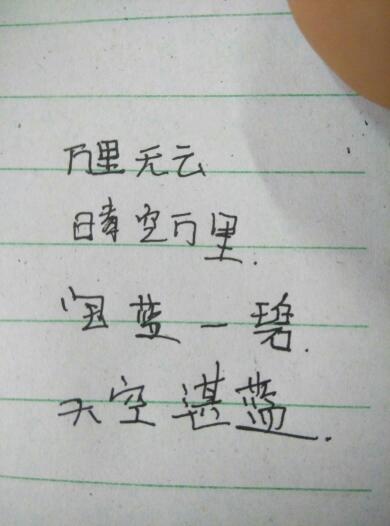 万里无云
晴空万里.
宝蓝一碧.
天空湛蓝.